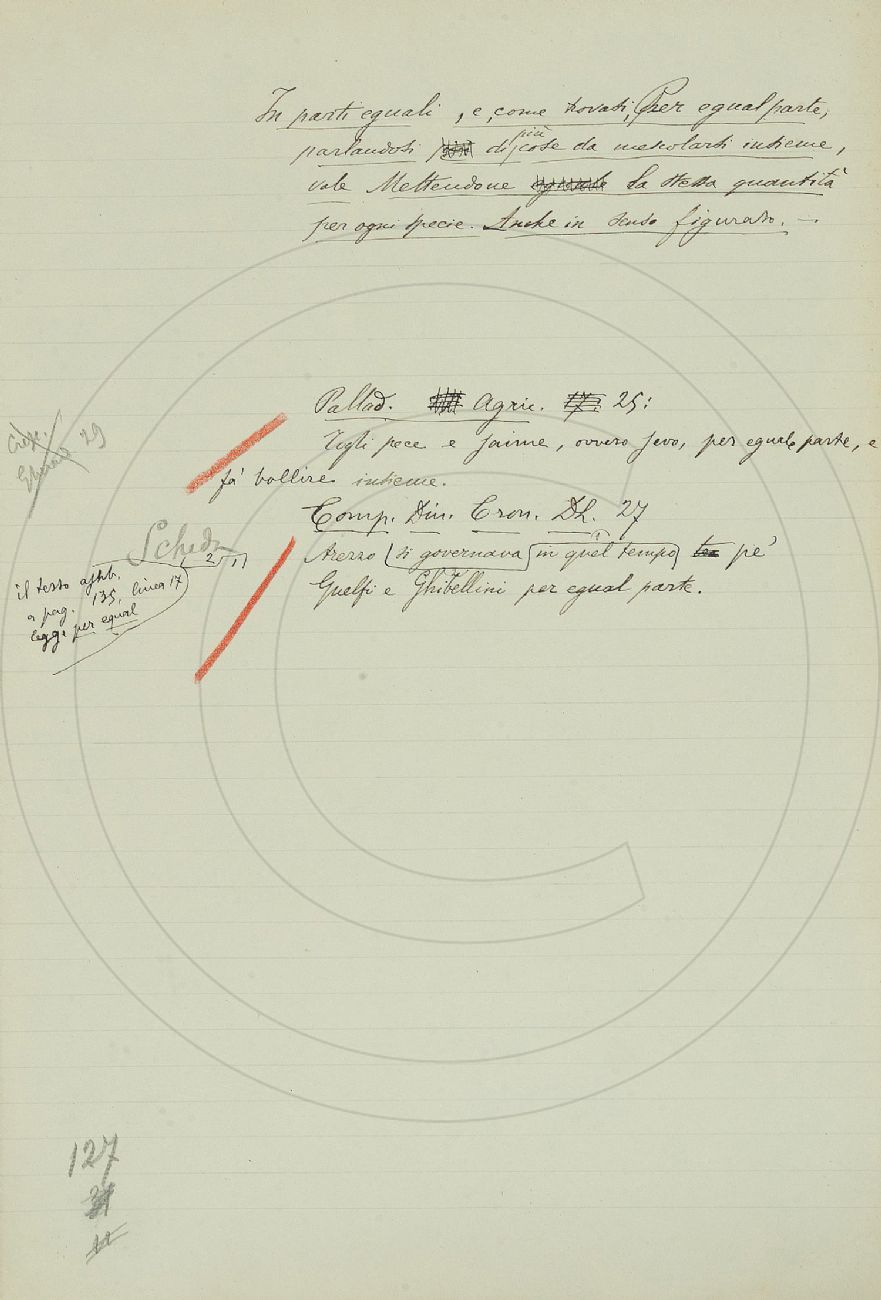 In parti eguali, e, come trovasi, Per egual parte,
parlandosi di più cose da mescolarsi insieme,
vale Mettendone la stessa quantità
per ogni specie. Anche in senso figurato. —
Pallad. Agric. 25:
Togli pece e saime, ovvero sevo, per eguale parte, e
fa' bollire insieme.
Comp. Din. Cron. Dl. 27
Arezzo si governava in quel tempo pe'
Guelfi e Ghibellini per egual parte.
29
Scheda
2 1
il testo
a pag. 135, linea 17
legge per equal
127